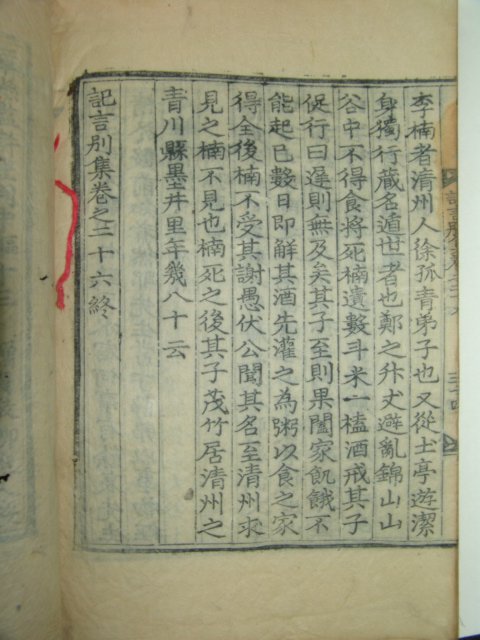 李楠者淸州人徐孤青弟子也又從土亭遊潔
身獨行藏名遁世者也鄭之升丈避亂錦山山
谷中不得食將死楠遺數斗米一榼酒戒其子
促行曰遲則無及矣其子至則果闔家飢餓不
能起已數日即解其酒先灌之為粥以食之家
得全後楠不受其謝愚伏公聞其名至淸州求
見之楠不見也楠死之後其子茂竹居淸州之
青川縣墨井里年幾八十云
記言別集卷之二十六終